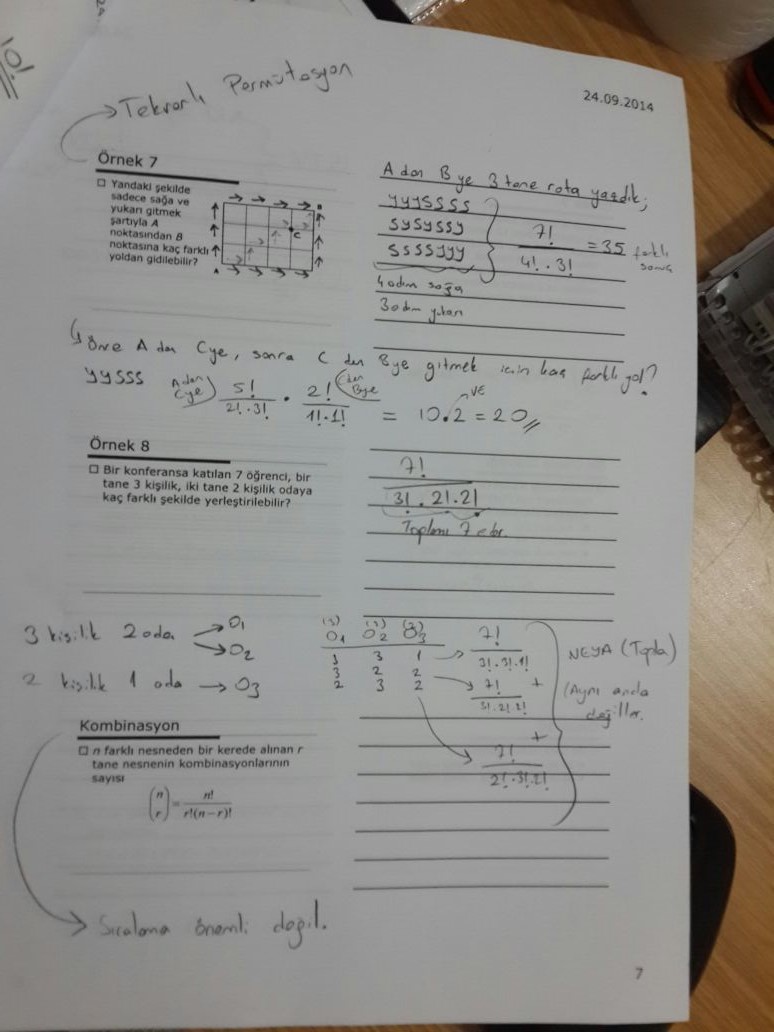 10!
24.09.2014
Tekrarlı Permütasyon
Örnek 7
□ Yandaki şekilde
sadece sağa ve
yukarı gitmek
şartıyla A
noktasından B
noktasına kaç farklı
yoldan gidilebilir?
B
C
A
A dan B ye 3 tane rota yazdık;
yyyssss
sysyssy
ssssyyy
7! / 4! . 3! = 35 farklı sonuç
4 adım sağa
3 adım yukarı
Önce A dan C ye, sonra C den B ye gitmek için kaç farklı yol?
yysss
A dan C ye
5! / 2! . 3! . 2! / 1! . 1! = 10 . 2 = 20
C den B ye
VE
Örnek 8
□ Bir konferansa katılan 7 öğrenci, bir
tane 3 kişilik, iki tane 2 kişilik odaya
kaç farklı şekilde yerleştirilebilir?
7!
3! . 2! . 2!
Toplamı 7 eder.
3 kişilik 2 oda → O1
→ O2
2 kişilik 1 oda → O3
(3) (3) (2)
O1 O2 O3
3 3 1 → 7! / 3! . 3! . 1!
+
3 2 2 → 7! / 3! . 2! . 2!
+
2 3 2 → 7! / 2! . 3! . 2!
VEYA (Topla)
(Aynı anda
değiller.
Kombinasyon
□ n farklı nesneden bir kerede alınan r
tane nesnenin kombinasyonlarının
sayısı
(n r) = n! / r!(n−r)!
Sıralama önemli değil.
7